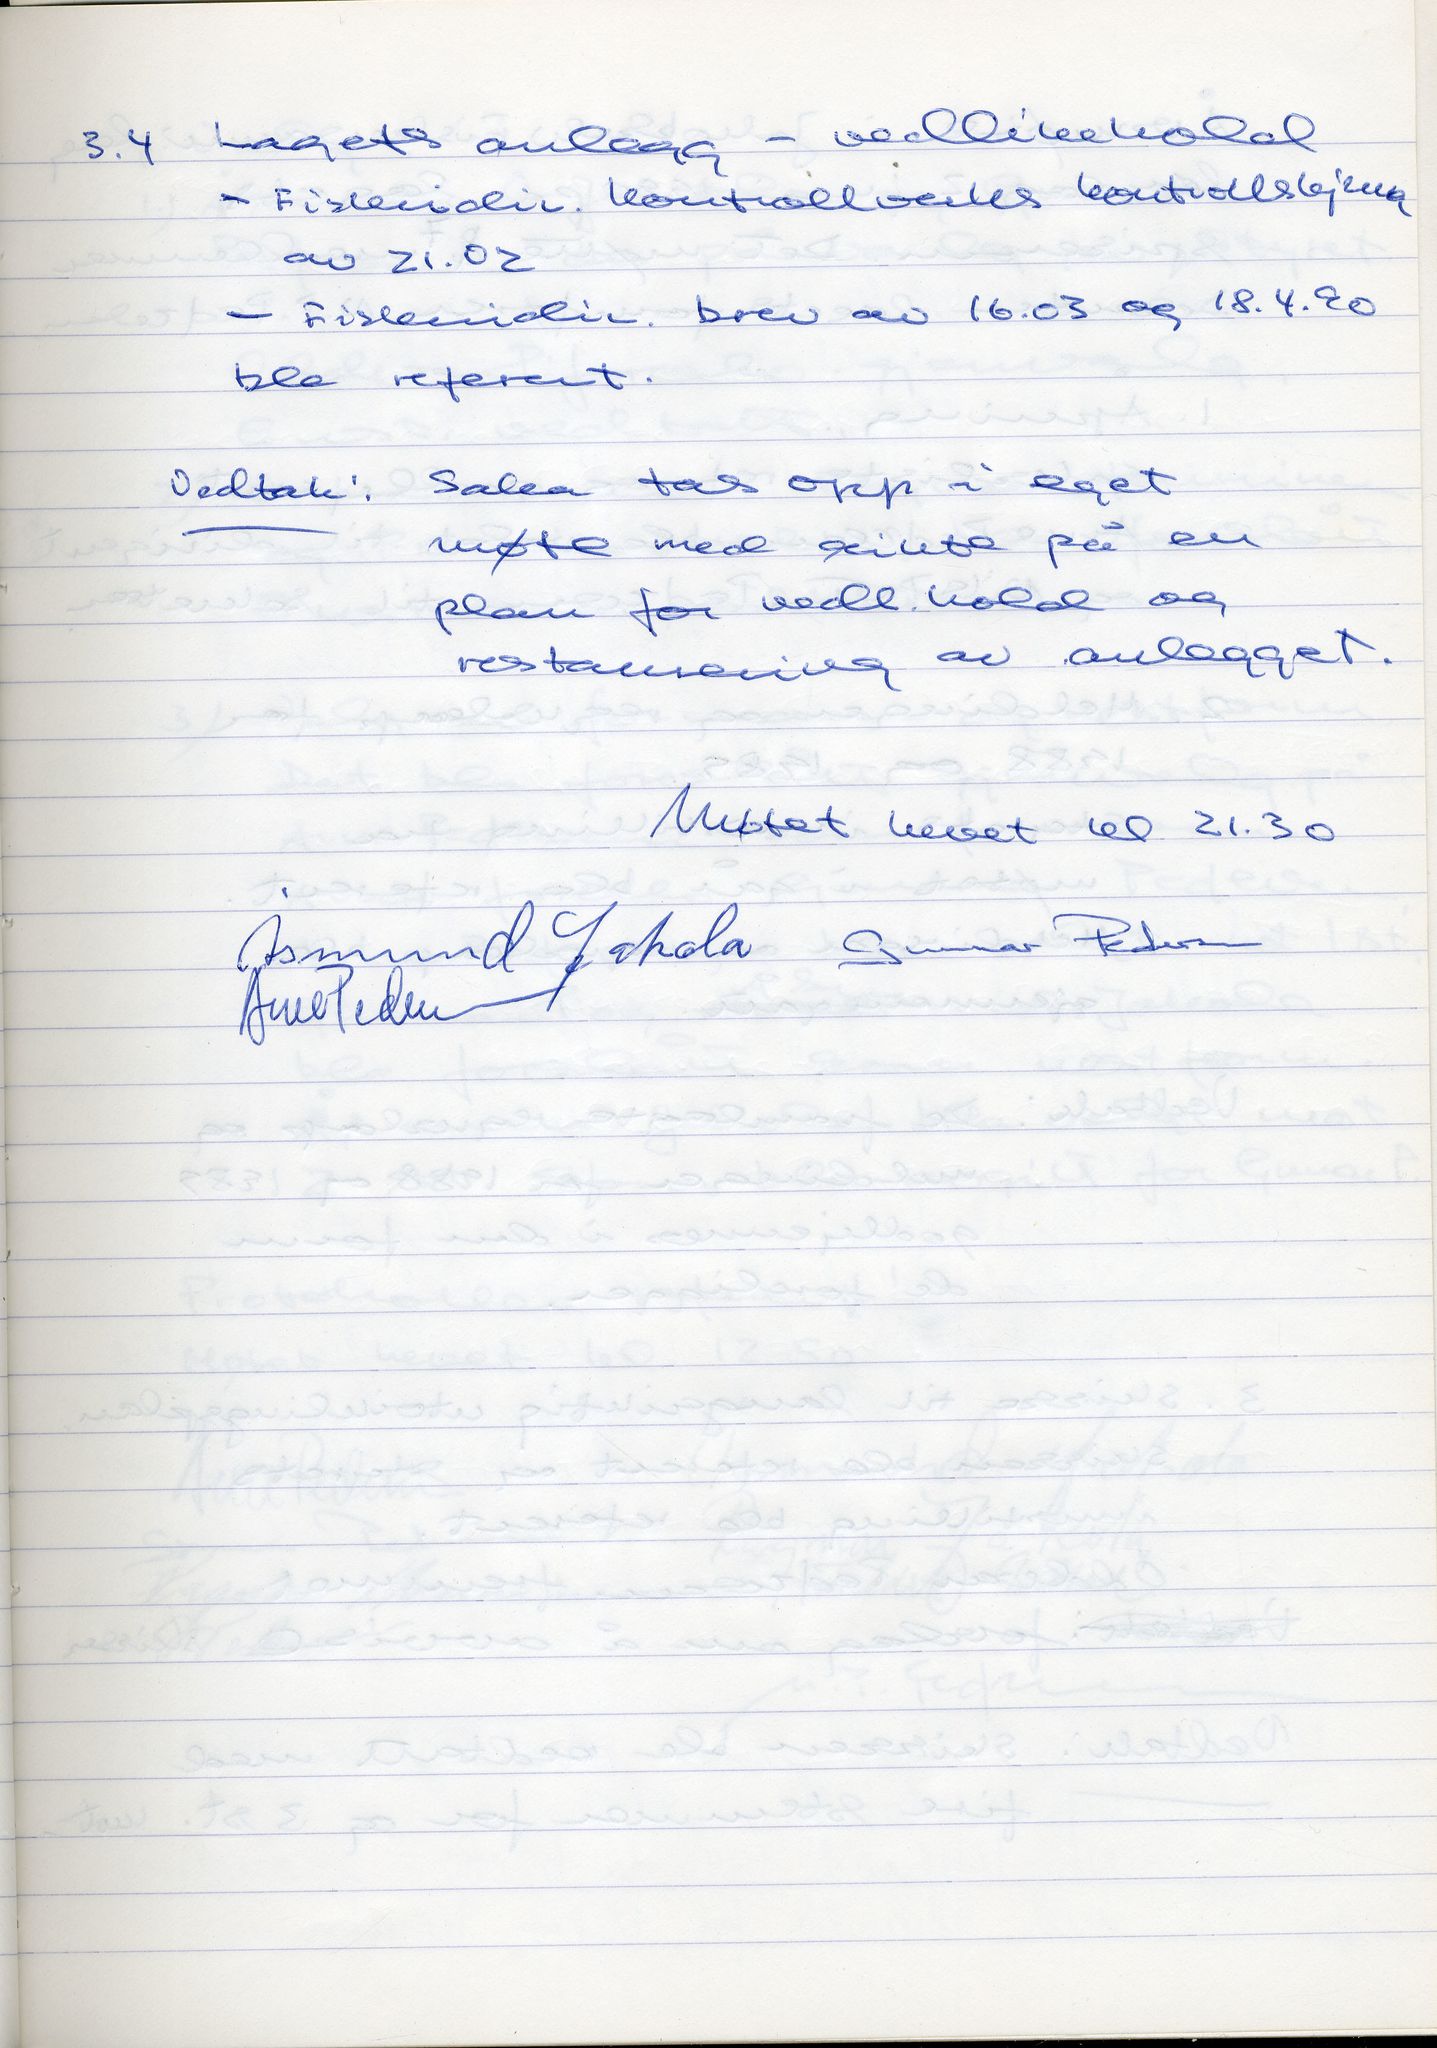 3.4 Lagets anlegg - vedlikehold
- Fiskeridir. kontrollverks kontrollskjema
av 21.02
- Fiskeridir. brev av 16.03 og 18.4.90
ble referert.
Vedtak: Saka tas opp i eget
møte med sikte på en
plan for vedl.hold og
restaurering av anlegget.
Møtet hevet kl 21.30
Asmund Gunnar Pedersen
Arne Pedersen